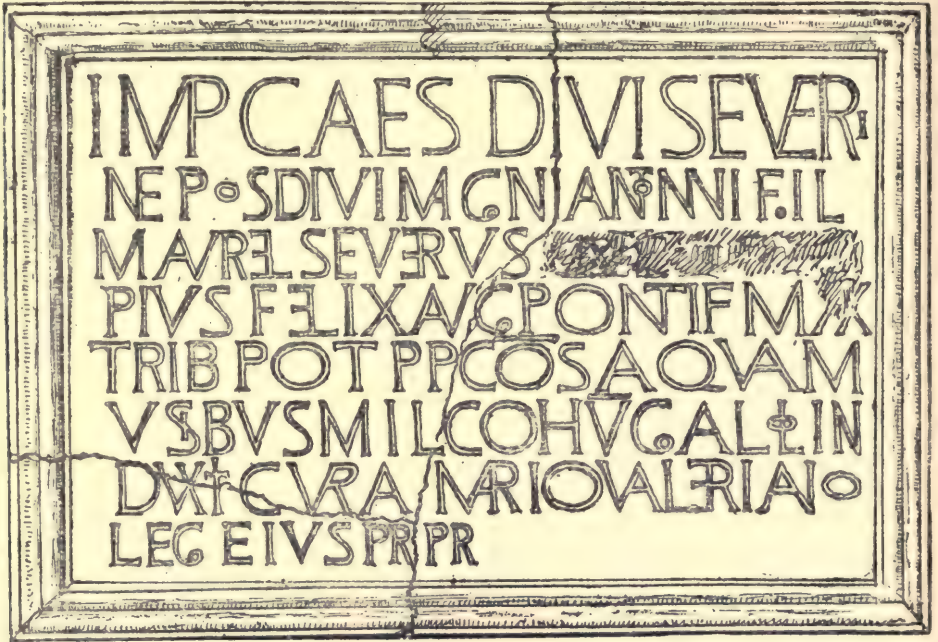 IMP CAES DIVI SEVERI
NEPOS DIVI MAGNI ANTONINI FIL
M AVREL SEVERVS
PIVS FELIX AVG PONTIF MAX
TRIB POT P P COS AQVAM
VSIBVS MIL COH V GALLO IN
DVXIT CVRA MARIO VALERIANO
LEG EIVS PR PR